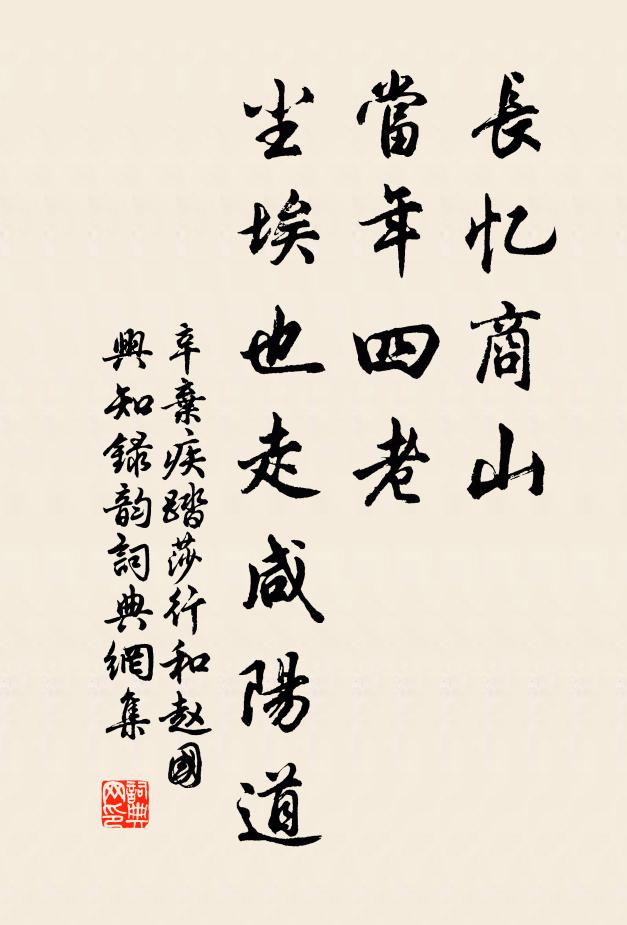 長忆商山
當年四老
尘埃也走咸陽道
辛棄疾踏莎行和赵國
興知録韵詞典網集
詞典网印